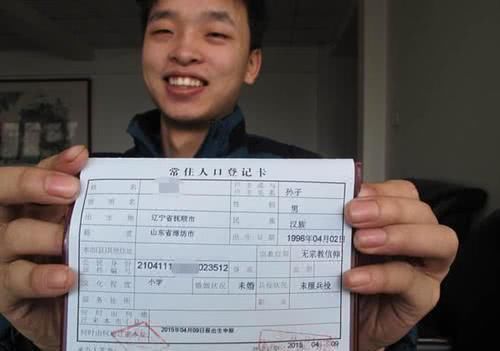 常住人口登记卡
姓名 户主或与户主关系 孙子
曾用名 性别 男
出生地 辽宁省抚顺市 民族 汉族
籍贯 山东省潍坊市 出生日期 1996年04月02日
本市(县)其他住址 宗教信仰 无宗教信仰
2104111 023512 身高 血型
文化程度 小学 婚姻状况 未婚 兵役状况 未服兵役
服务处所 职业
何时由何地
迁来本市
何时由何地迁来本址 2015年04月09日
2015 09